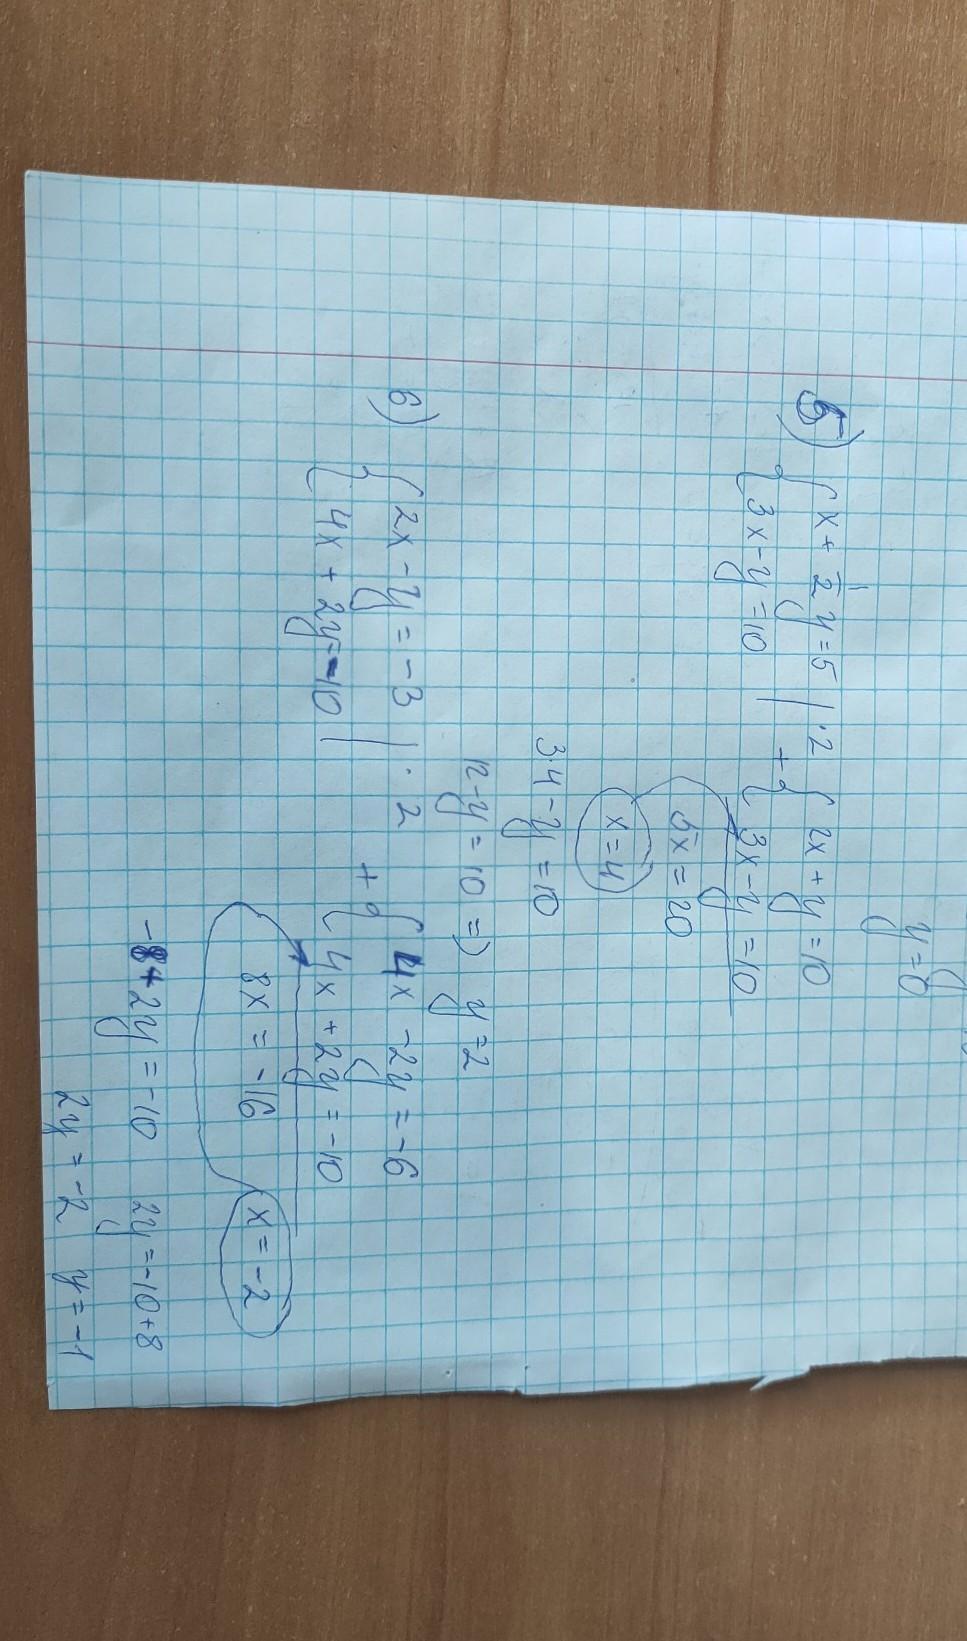 y=0
5) { x + 1/2 y = 5 | ·2 { 2x + y = 10
{ 3x - y = 10 | + { 3x - y = 10
5x = 20
x = 4
3·4 - y = 10
12 - y = 10 => y = 2
6) { 2x - y = -3 | · 2 { 4x - 2y = -6
{ 4x + 2y = -10 | + { 4x + 2y = -10
8x = -16 x = -2
-8 + 2y = -10 2y = -10 + 8
2y = -2 y = -1